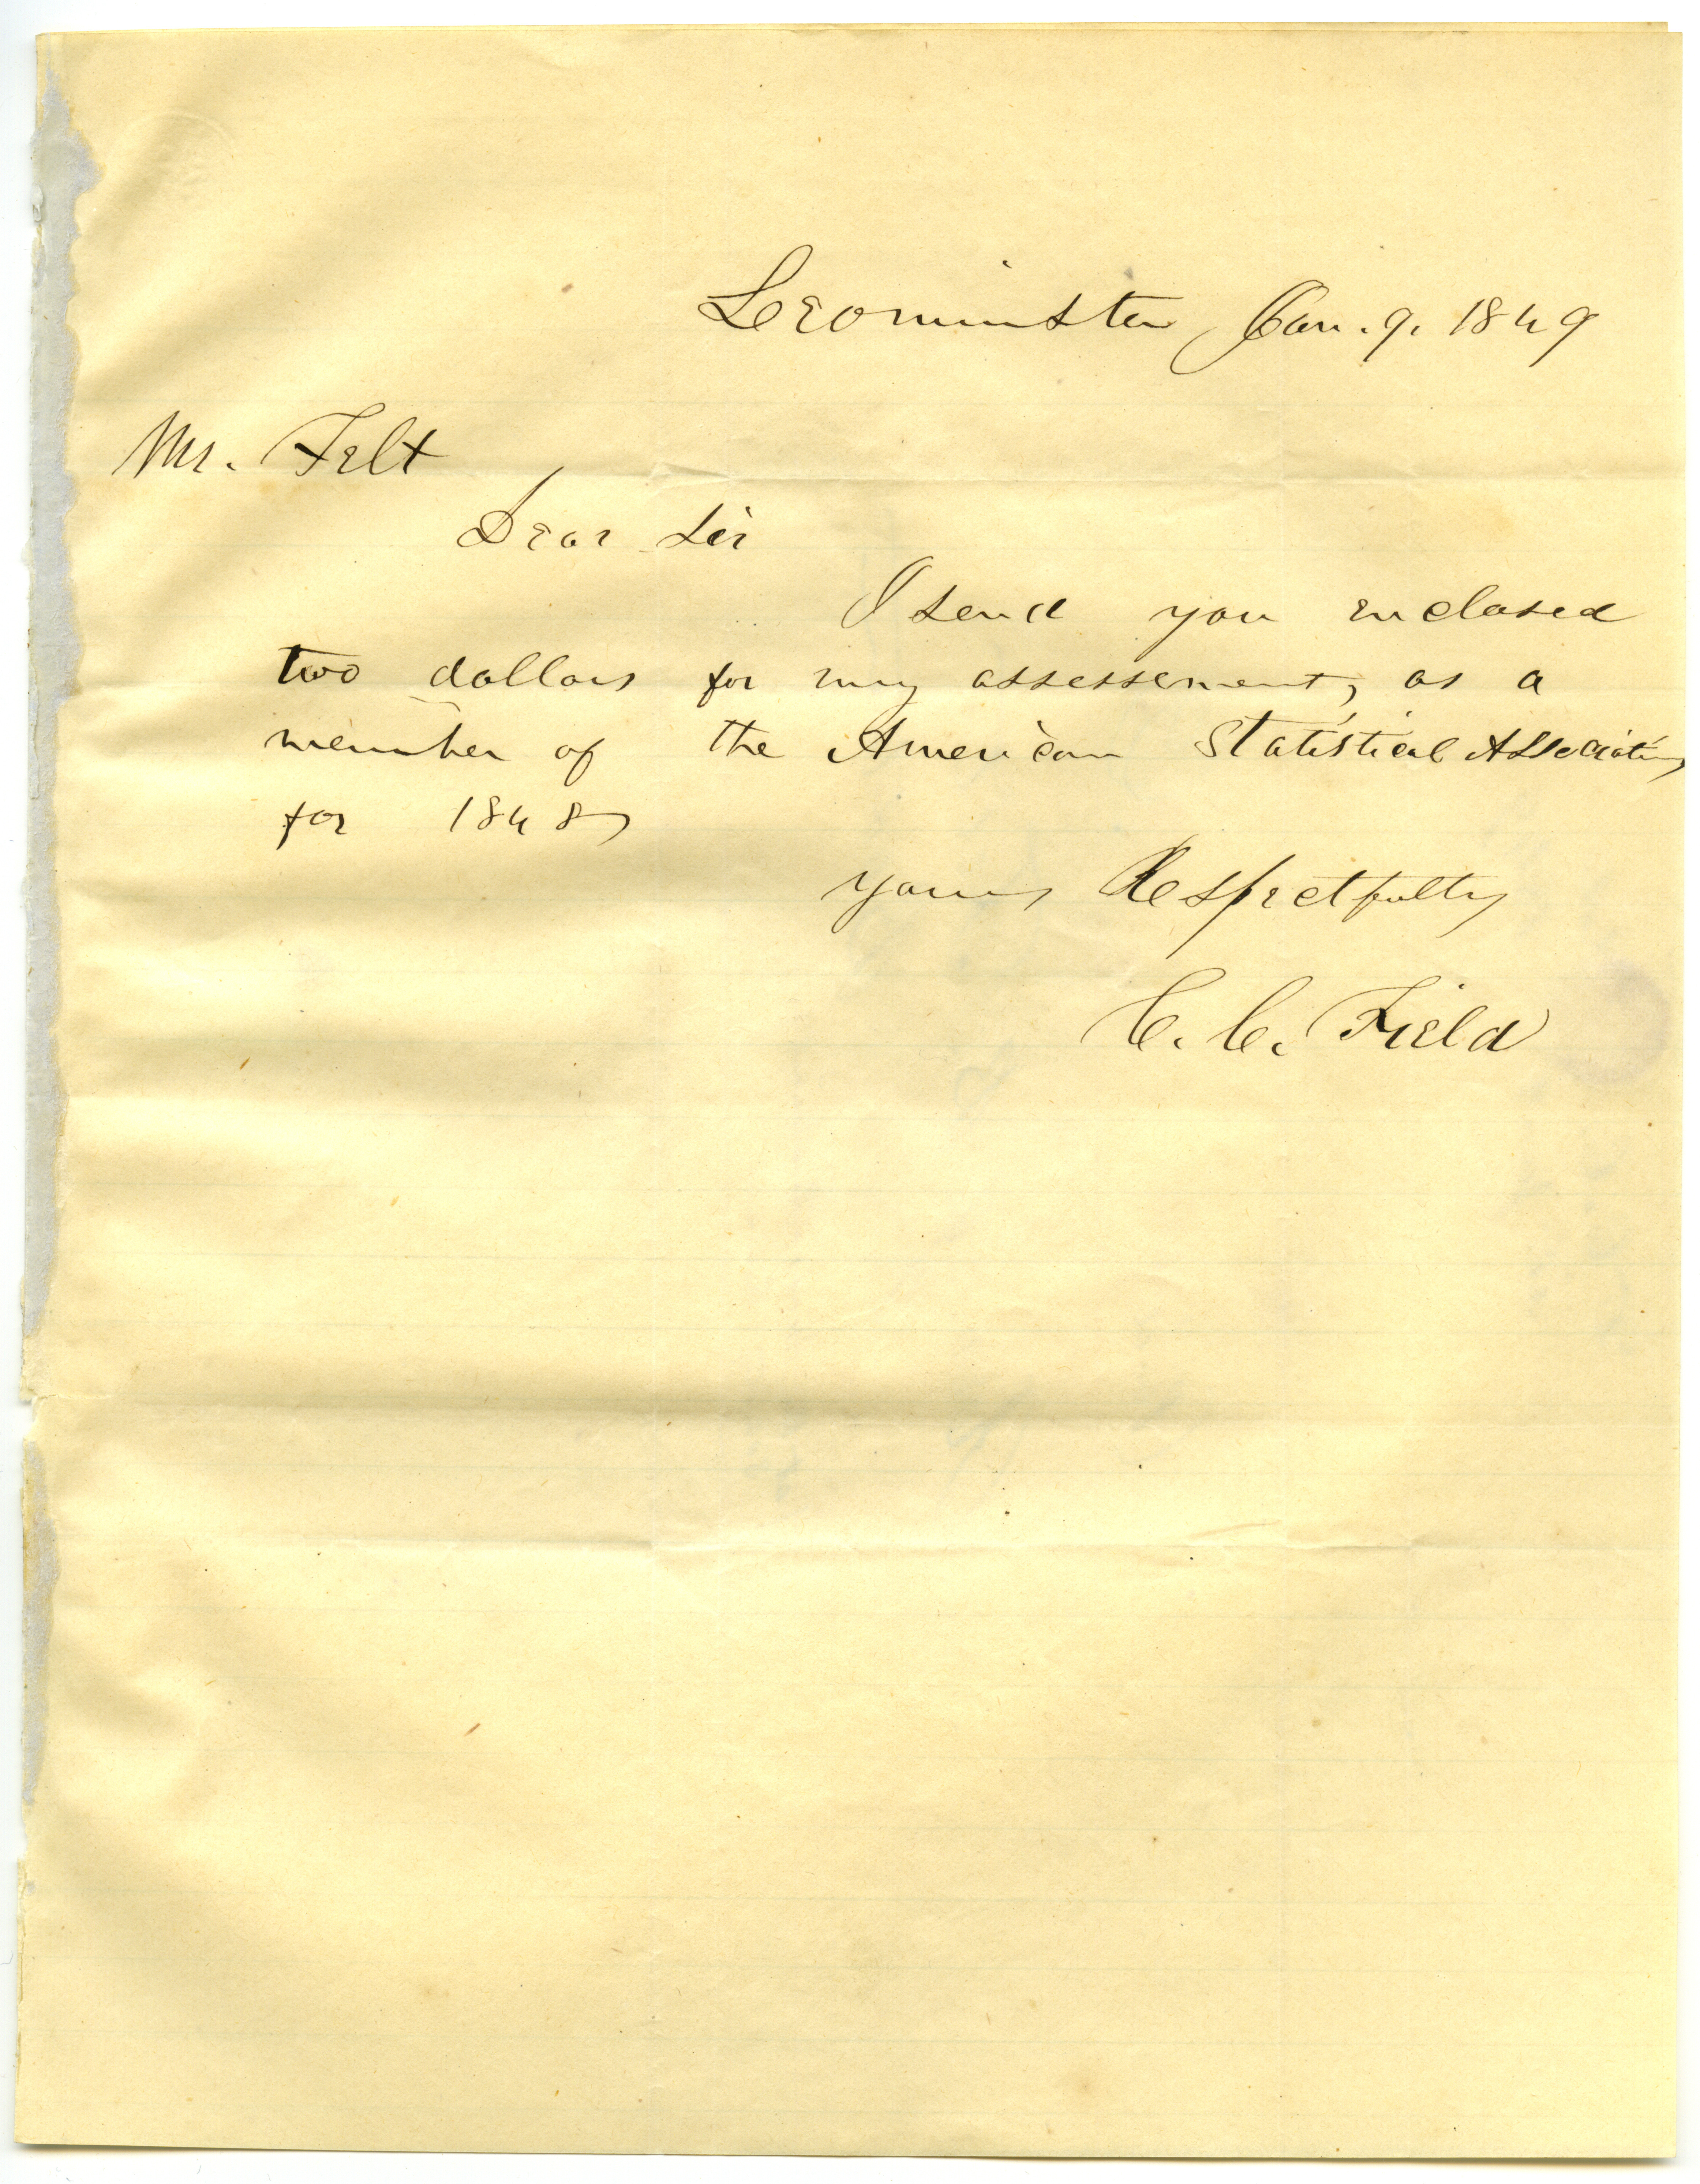 Leominster Jan. 9. 1849
Mr. Felt
Dear Sir
I send you enclosed
two dollars for my assessement, as a
member of the American Statistical Association
for 1848,
yours Respectfully
C. C. Field